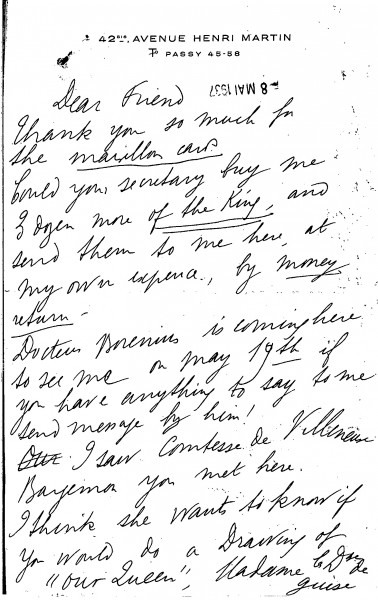 42BIS, AVENUE HENRI MARTIN
PASSY 45-58
8 MAI 1937
Dear Friend
Thank you so much for
the cards
Could your secretary buy me
3 dozen more of the King, and
send them to me here, at
my own expence, by money
return -
Docteur Borenius is coming here
to see me on may 19th if
you have anything to say to me
send message by him!
I saw Comtesse de Villeneuve
Bargemon you met here.
I think she wants to know if
you would do a Drawing of
"Our Queen", Madame la Dsse de
Guise